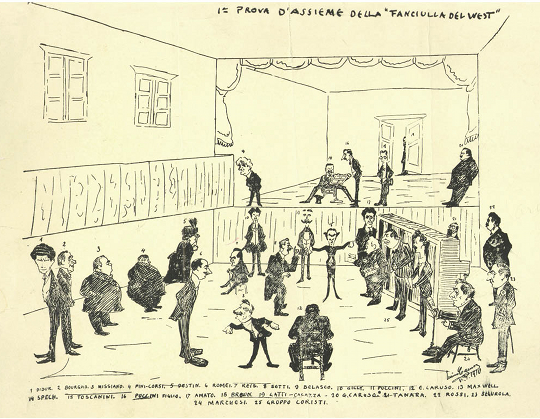 1ª PROVA D'ASSIEME DELLA "FANCIULLA DEL WEST"
1 DIDUR. 2 BOURGAS. 3 MISSIANO. 4 PINI-CORSI. 5 DESTIN. 6 ROMEI. 7 REIS. 8 GOTTI. 9 BELASCO. 10 GILLY. 11 PUCCINI. 12 E. CARUSO. 13 MAXWELL.
14 SPECK. 15 TOSCANINI. 16 PUCCINI FIGLIO. 17 AMATO. 18 19 GATTI-CASAZZA - 20 G. CARUSO. 21-TANARA. 22 ROSSI. 23 SEGUROLA.
24 MARCHESI. 25 GRUPPO CORISTI.